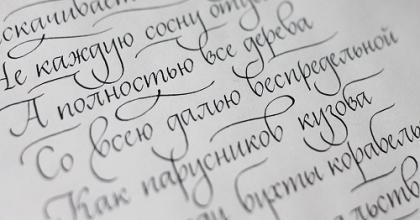 скачивает
Не каждую сосну отде
А полностью все дерева
Со всею далью беспредельной
Как парусников кузова
бухты корабель